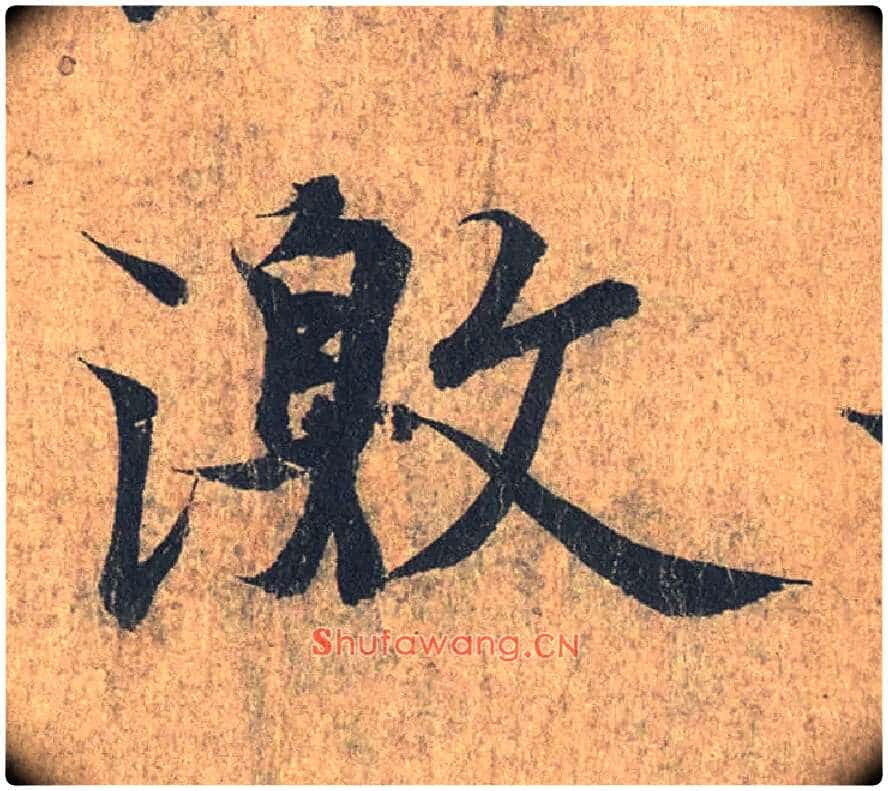 激
Shufawang.CN